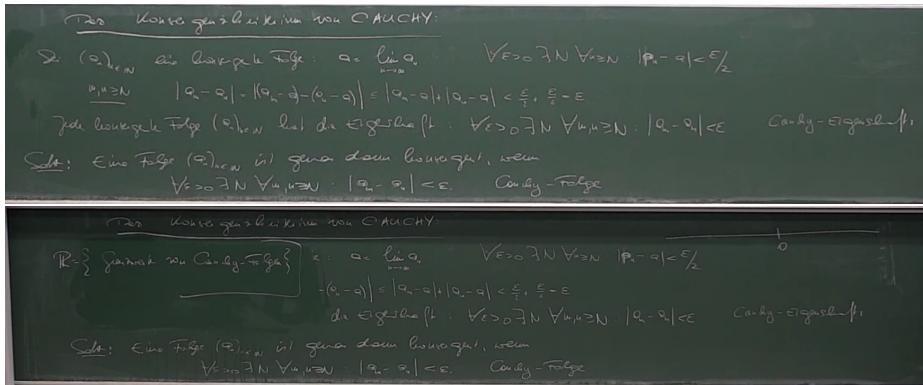 Das Konvergenzkriterium von CAUCHY:
Sei (aₙ)ₙ∈ℕ eine konvergente Folge: a = lim aₙ n→∞ ∀ε>0 ∃N ∀n≥N |aₙ - a| < ε/2
m,n≥N |aₘ - aₙ| = |(aₘ - a) - (aₙ - a)| ≤ |aₘ - a| + |aₙ - a| < ε/2 + ε/2 = ε
Jede konvergente Folge (aₙ)ₙ∈ℕ hat die Eigenschaft: ∀ε>0 ∃N ∀m,n≥N: |aₘ - aₙ| < ε Cauchy-Eigenschaft
Satz: Eine Folge (aₙ)ₙ∈ℕ ist genau dann konvergent, wenn
∀ε>0 ∃N ∀m,n≥N: |aₘ - aₙ| < ε. Cauchy-Folge
Das Konvergenzkriterium von CAUCHY:
0
ℝ = { Grenzwerte von Cauchy-Folgen } : a = lim aₙ n→∞ ∀ε>0 ∃N ∀n≥N |aₙ - a| < ε/2
-(aₙ - a)| ≤ |aₘ - a| + |aₙ - a| < ε/2 + ε/2 = ε
die Eigenschaft: ∀ε>0 ∃N ∀m,n≥N: |aₘ - aₙ| < ε Cauchy-Eigenschaft
Satz: Eine Folge (aₙ)ₙ∈ℕ ist genau dann konvergent, wenn
∀ε>0 ∃N ∀m,n≥N: |aₘ - aₙ| < ε. Cauchy-Folge